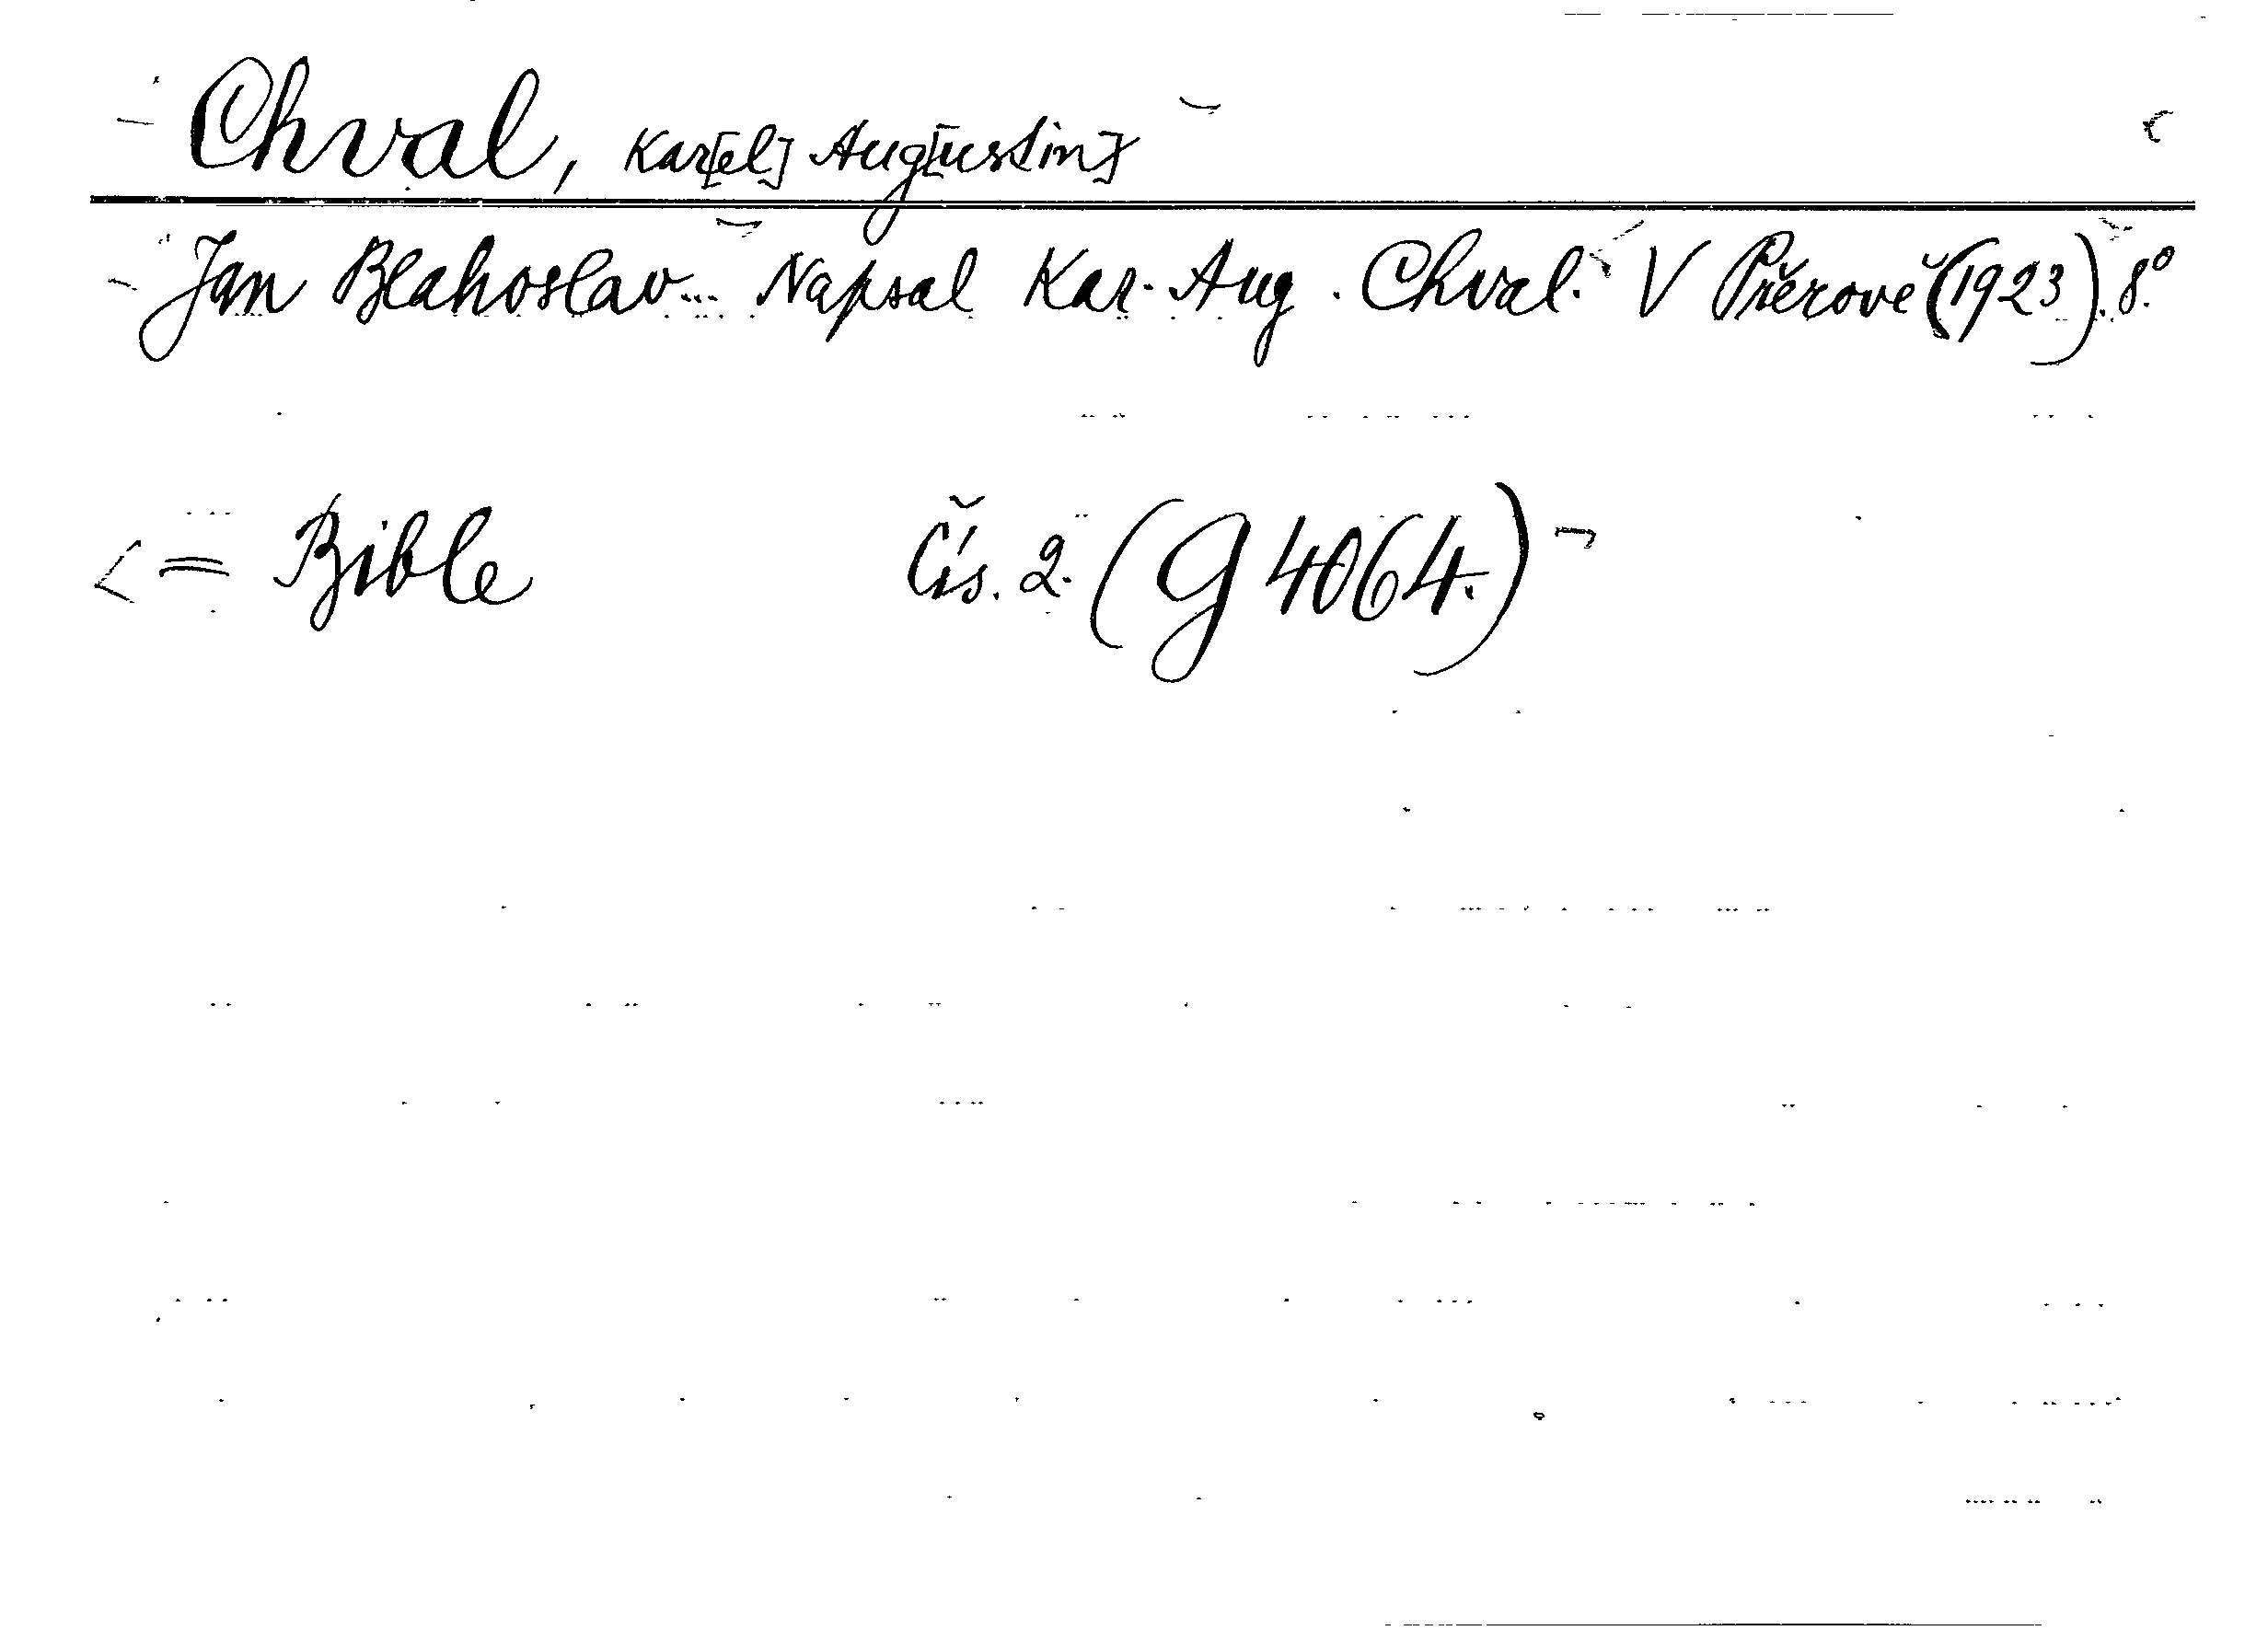 Chval, Kar[el] Aug[ustin]
Jan Blahoslav... Napsal Kar. Aug. Chval. V Přerově (1923). 8.°
= Bible Čís. 2. (G 4064.)